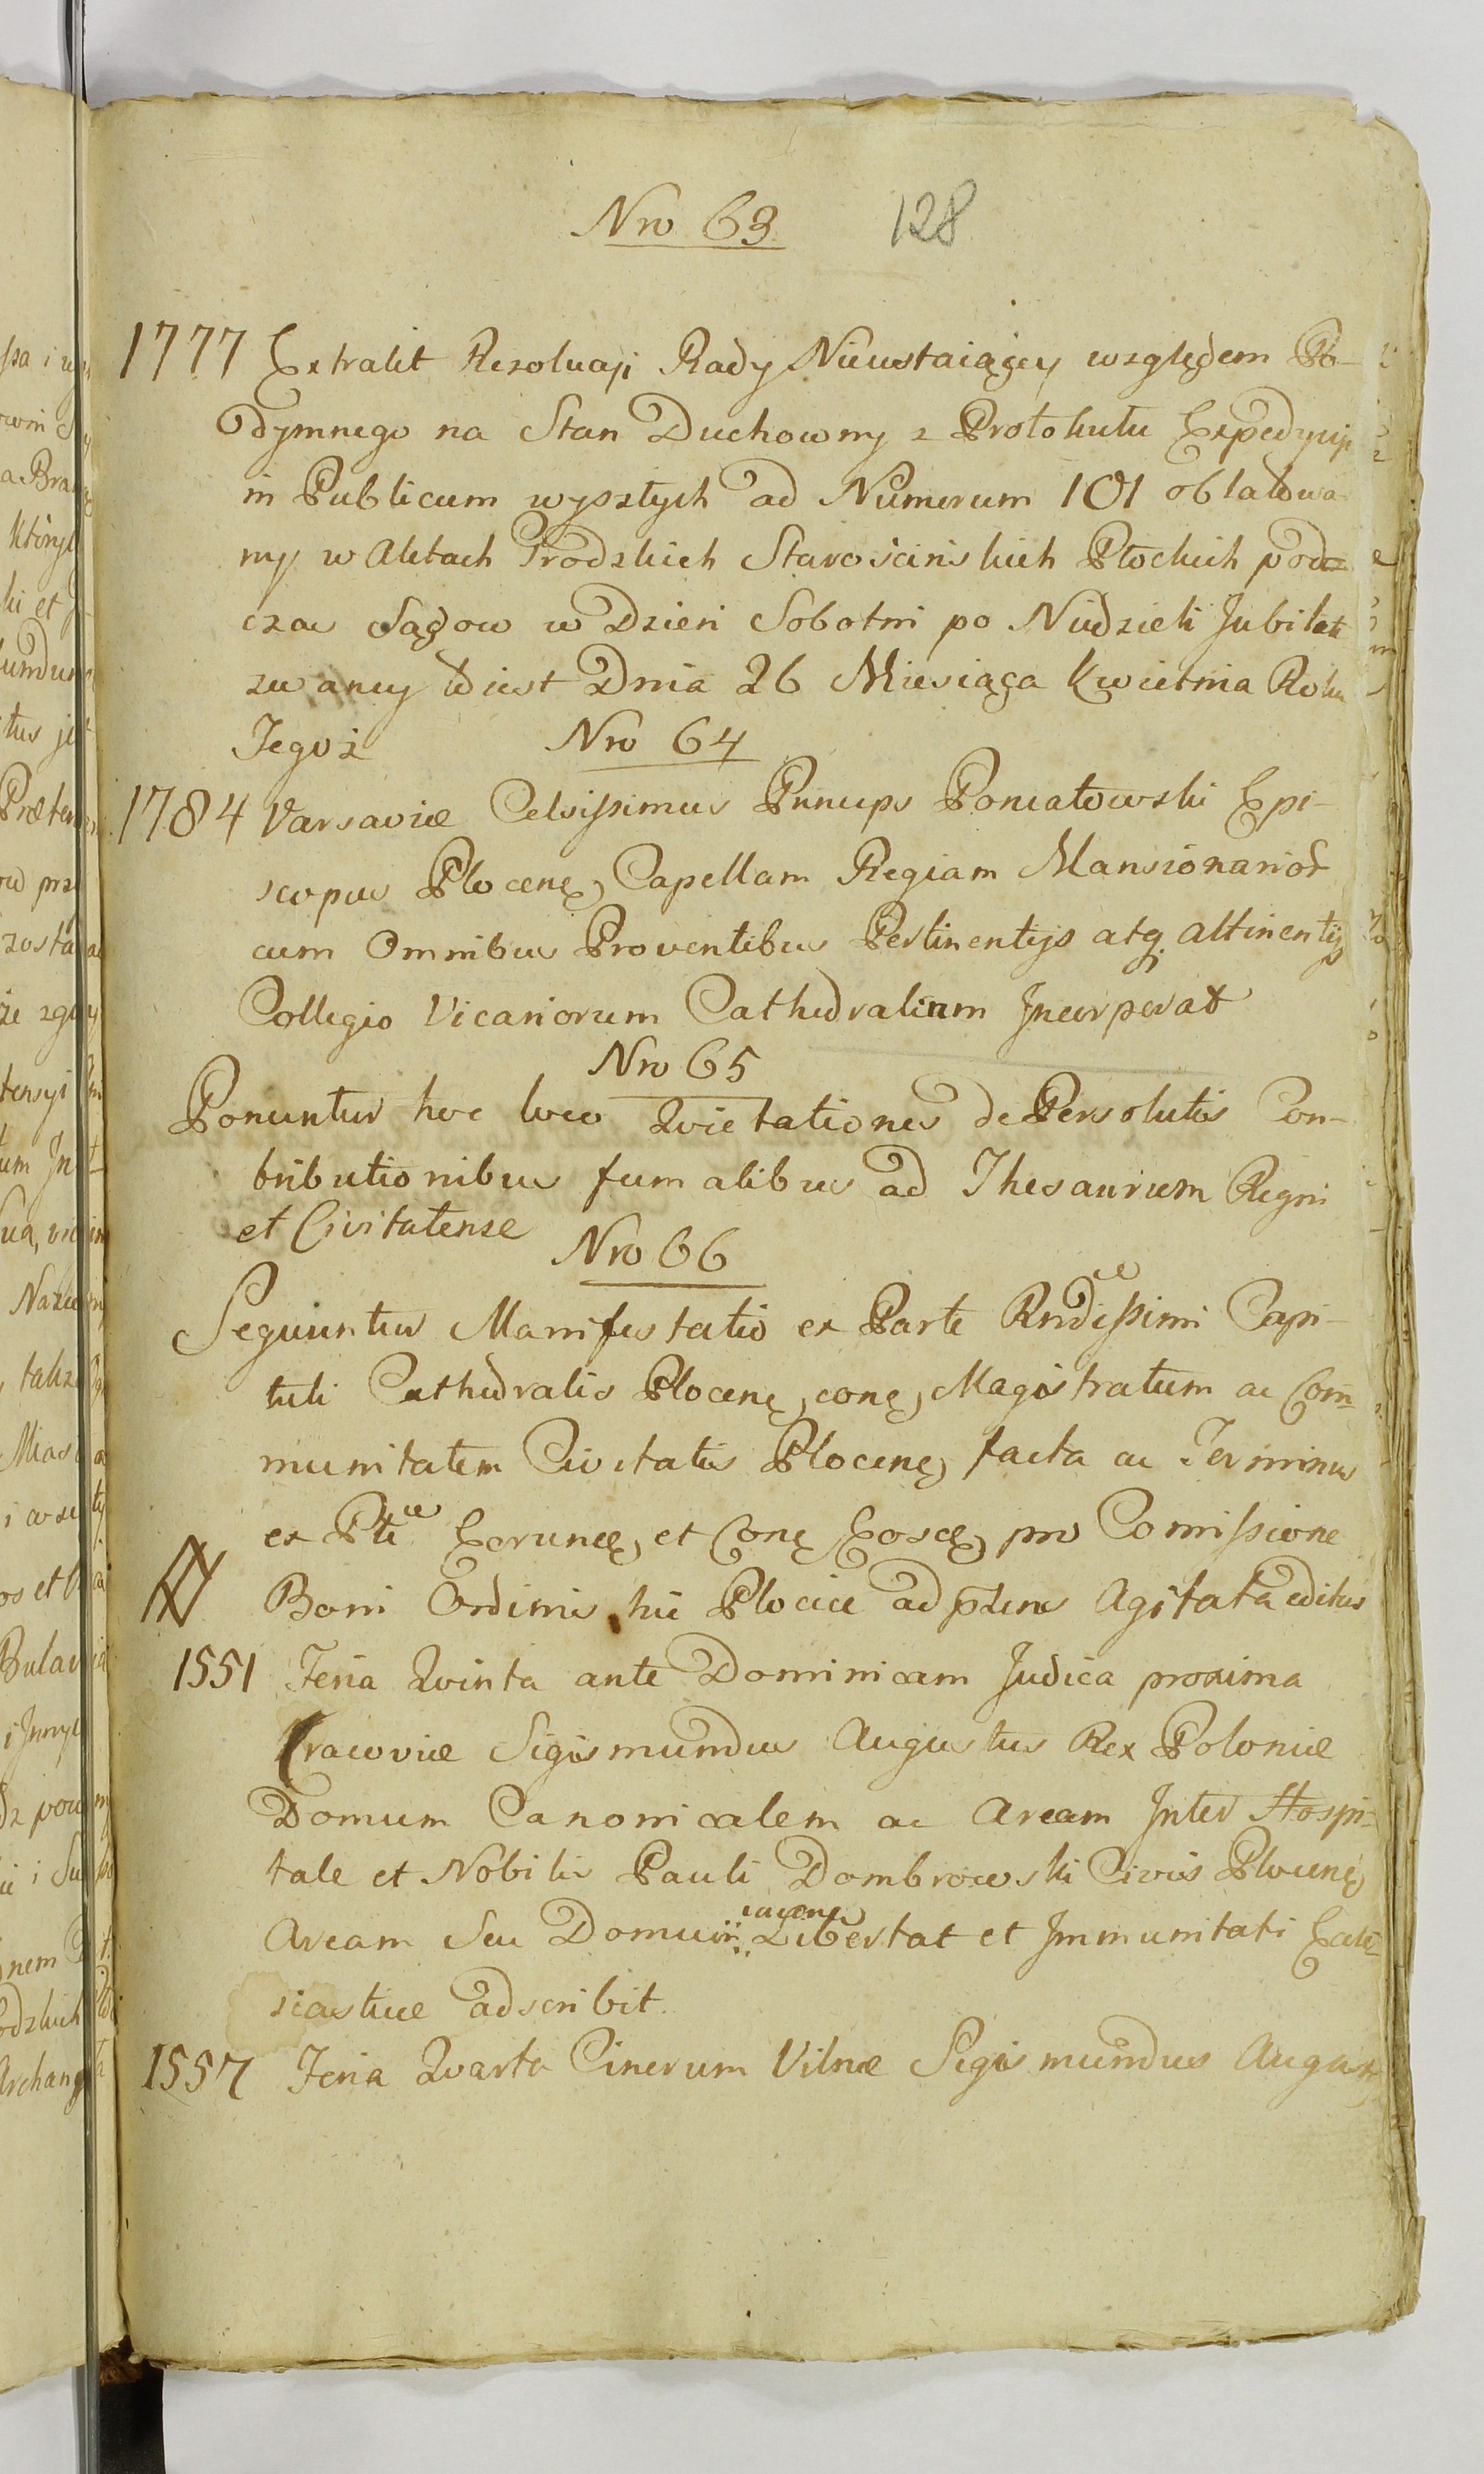 Nro 63 128
1777 Extrakt Rezolucyi Rady Nieustaiącey względem Po-
dymnego na Stan Duchowny z Protokułu Expedycyi
in Publicum wyszłych ad Numerum 101 oblatowa
ny w Aktach Grodzkich Starościnskich Płockich pod
czas Sądow w Dzień Sobotni po Niedzieli Jubilate
zwaney to iest Dnia 26 Miesiąca Kwietnia Roku
Tegoż Nro 64
1784 Varsaviæ Celsissimus Princeps Poniatowski Epi-
scopus Plocenę, Capellam Regiam Mansionarior
cum Omnibus Proventibus Pertinentijs atq attinentijs
Collegio Vicariorum Cathedralium Incorporat
Nro 65
Ponuntur hoc loco Quietationes de Persolutis Con-
tributionibus fumalibus ad Thesaurum Regni
et Civitatense Nro 66
Sequuntur Manifestatio ex Parte Rndissimi Capi-
tuli Cathedralis Plocenę, conę, Magistratum ac Com-
munitatem Civitatis Plocenę, facta ac Terminus
ex Pte Eorundę, et Conę Eosdę, pro Comissione
Boni Ordinis hic Plociæ ad pzens Agitata editus
1551 Feria Quinta ante Dominicam Judica proxima
Cracoviæ Sigismundus Augustus Rex Poloniæ
Domum Canonicalem ac Aream Inter Hospi-
tale et Nobilis Pauli Dombrowski Civis Plocenę,
iacenę,
Aream Seu Domum Libertat et Immunitati Eccle-
siasticæ adscribit.
1557 Feria Quarta Cinerum Vilnæ Sigismundus August,